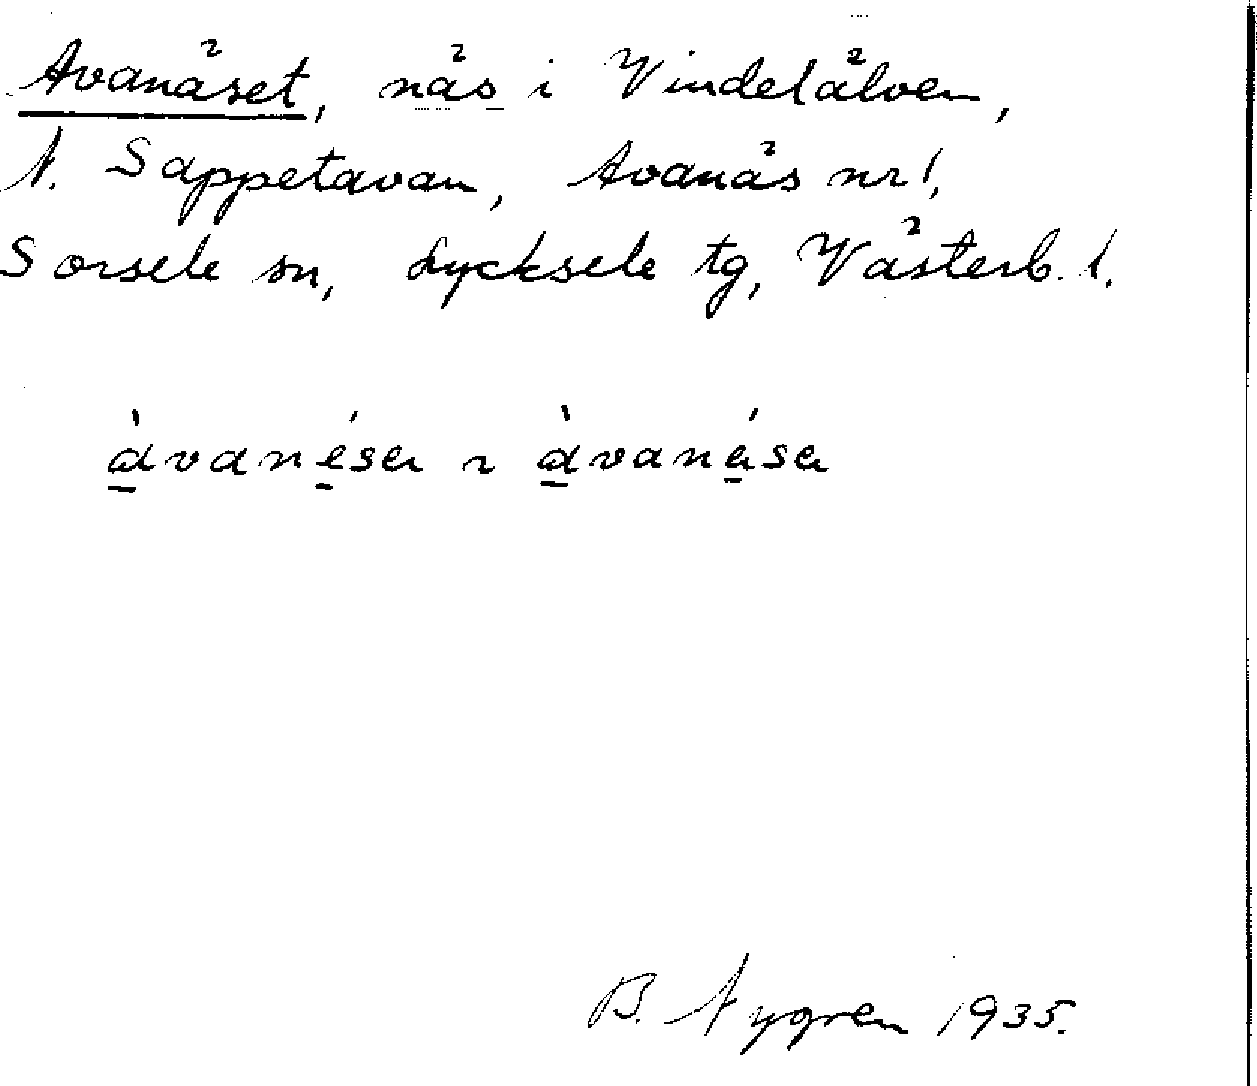 Avanäset, näs i Vindelälven,
N. Sappetavan, Avanäs nr 1,
Sorsele sn, Lycksele tg, Västerb. l.
àvanésa ~ àvanása
B. Nygren 1935.